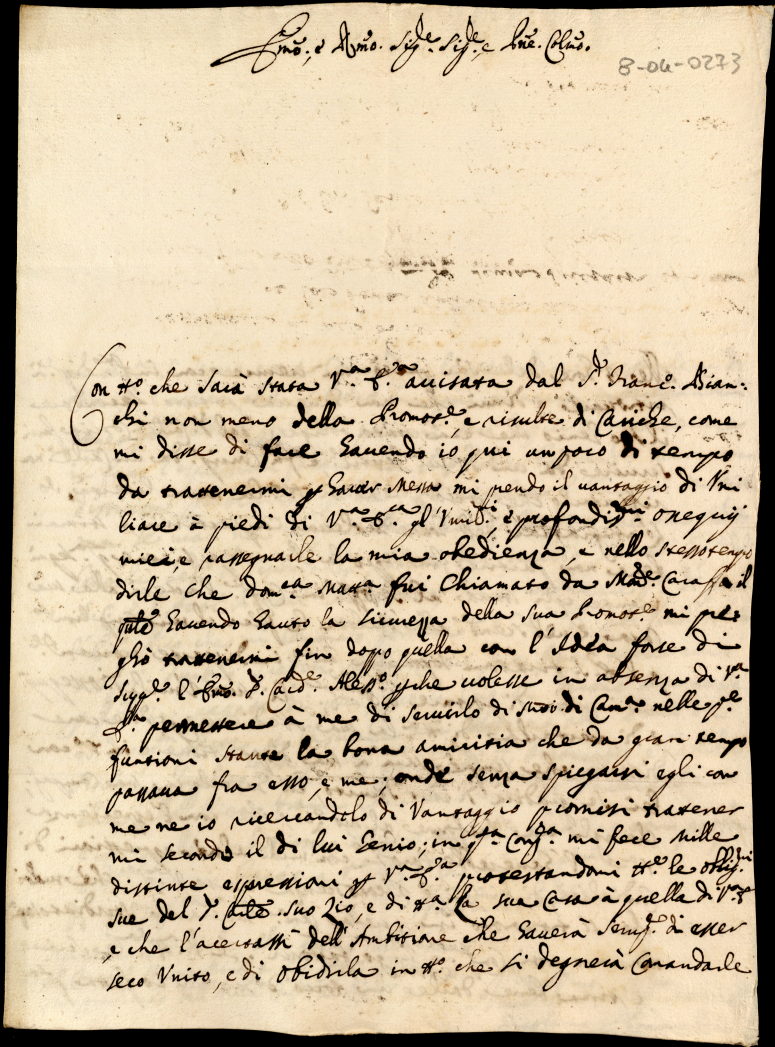 Emo., e Rmo. Sigre. Sigre., e Pne. Colmo.
8-04-0273
Con tto. che sarà stata Va. Ea. auisata dal Sr. Franco. Bian=
chi non meno della Promote., e risulte di Cariche, come
mi disse di fare hauendo io qui un poco di tempo
da trattenermi p hauer Messa mi prendo il uantaggio di Vmi
liare à piedi di Va. Ea. gl' Vmili, e profondismi ossequij
miei, e rassegnarle la mia obedienza, e nello stesso tempo
dirle che domca. matta. fui Chiamato da Mre. Caraffa il
qule hauendo hauto la sicurezza della sua Promote. mi pre=
ghò trattenermi fin doppo quella con l'Idea forse di
suppe. l'Emo. Sr. Carde. Alesso. pche uolesse in absenza di Va.
Ea. permettere à me di seruirlo di di Came. nelle pe.
funtioni stante la bona amicitia che da gran tempo
passaua fra esso, e me; onde senza spiegarsi egli con
me ne io ricercandolo di Vantaggio promisi trattener
mi secondo il di lui Genio; in qta. Cona. mi fece mille
distinte espressioni p Va. Ea. protestandomi tte. le obligni
sue del Sr. Carle. suo Zio, e di tta. la sua Casa à quella di Va. E.
, e che l'acertassi dell'Ambitione che hauerà sempe. di esser
seco Vnito, e di obidirla in tto. che si degnerà Comandarle